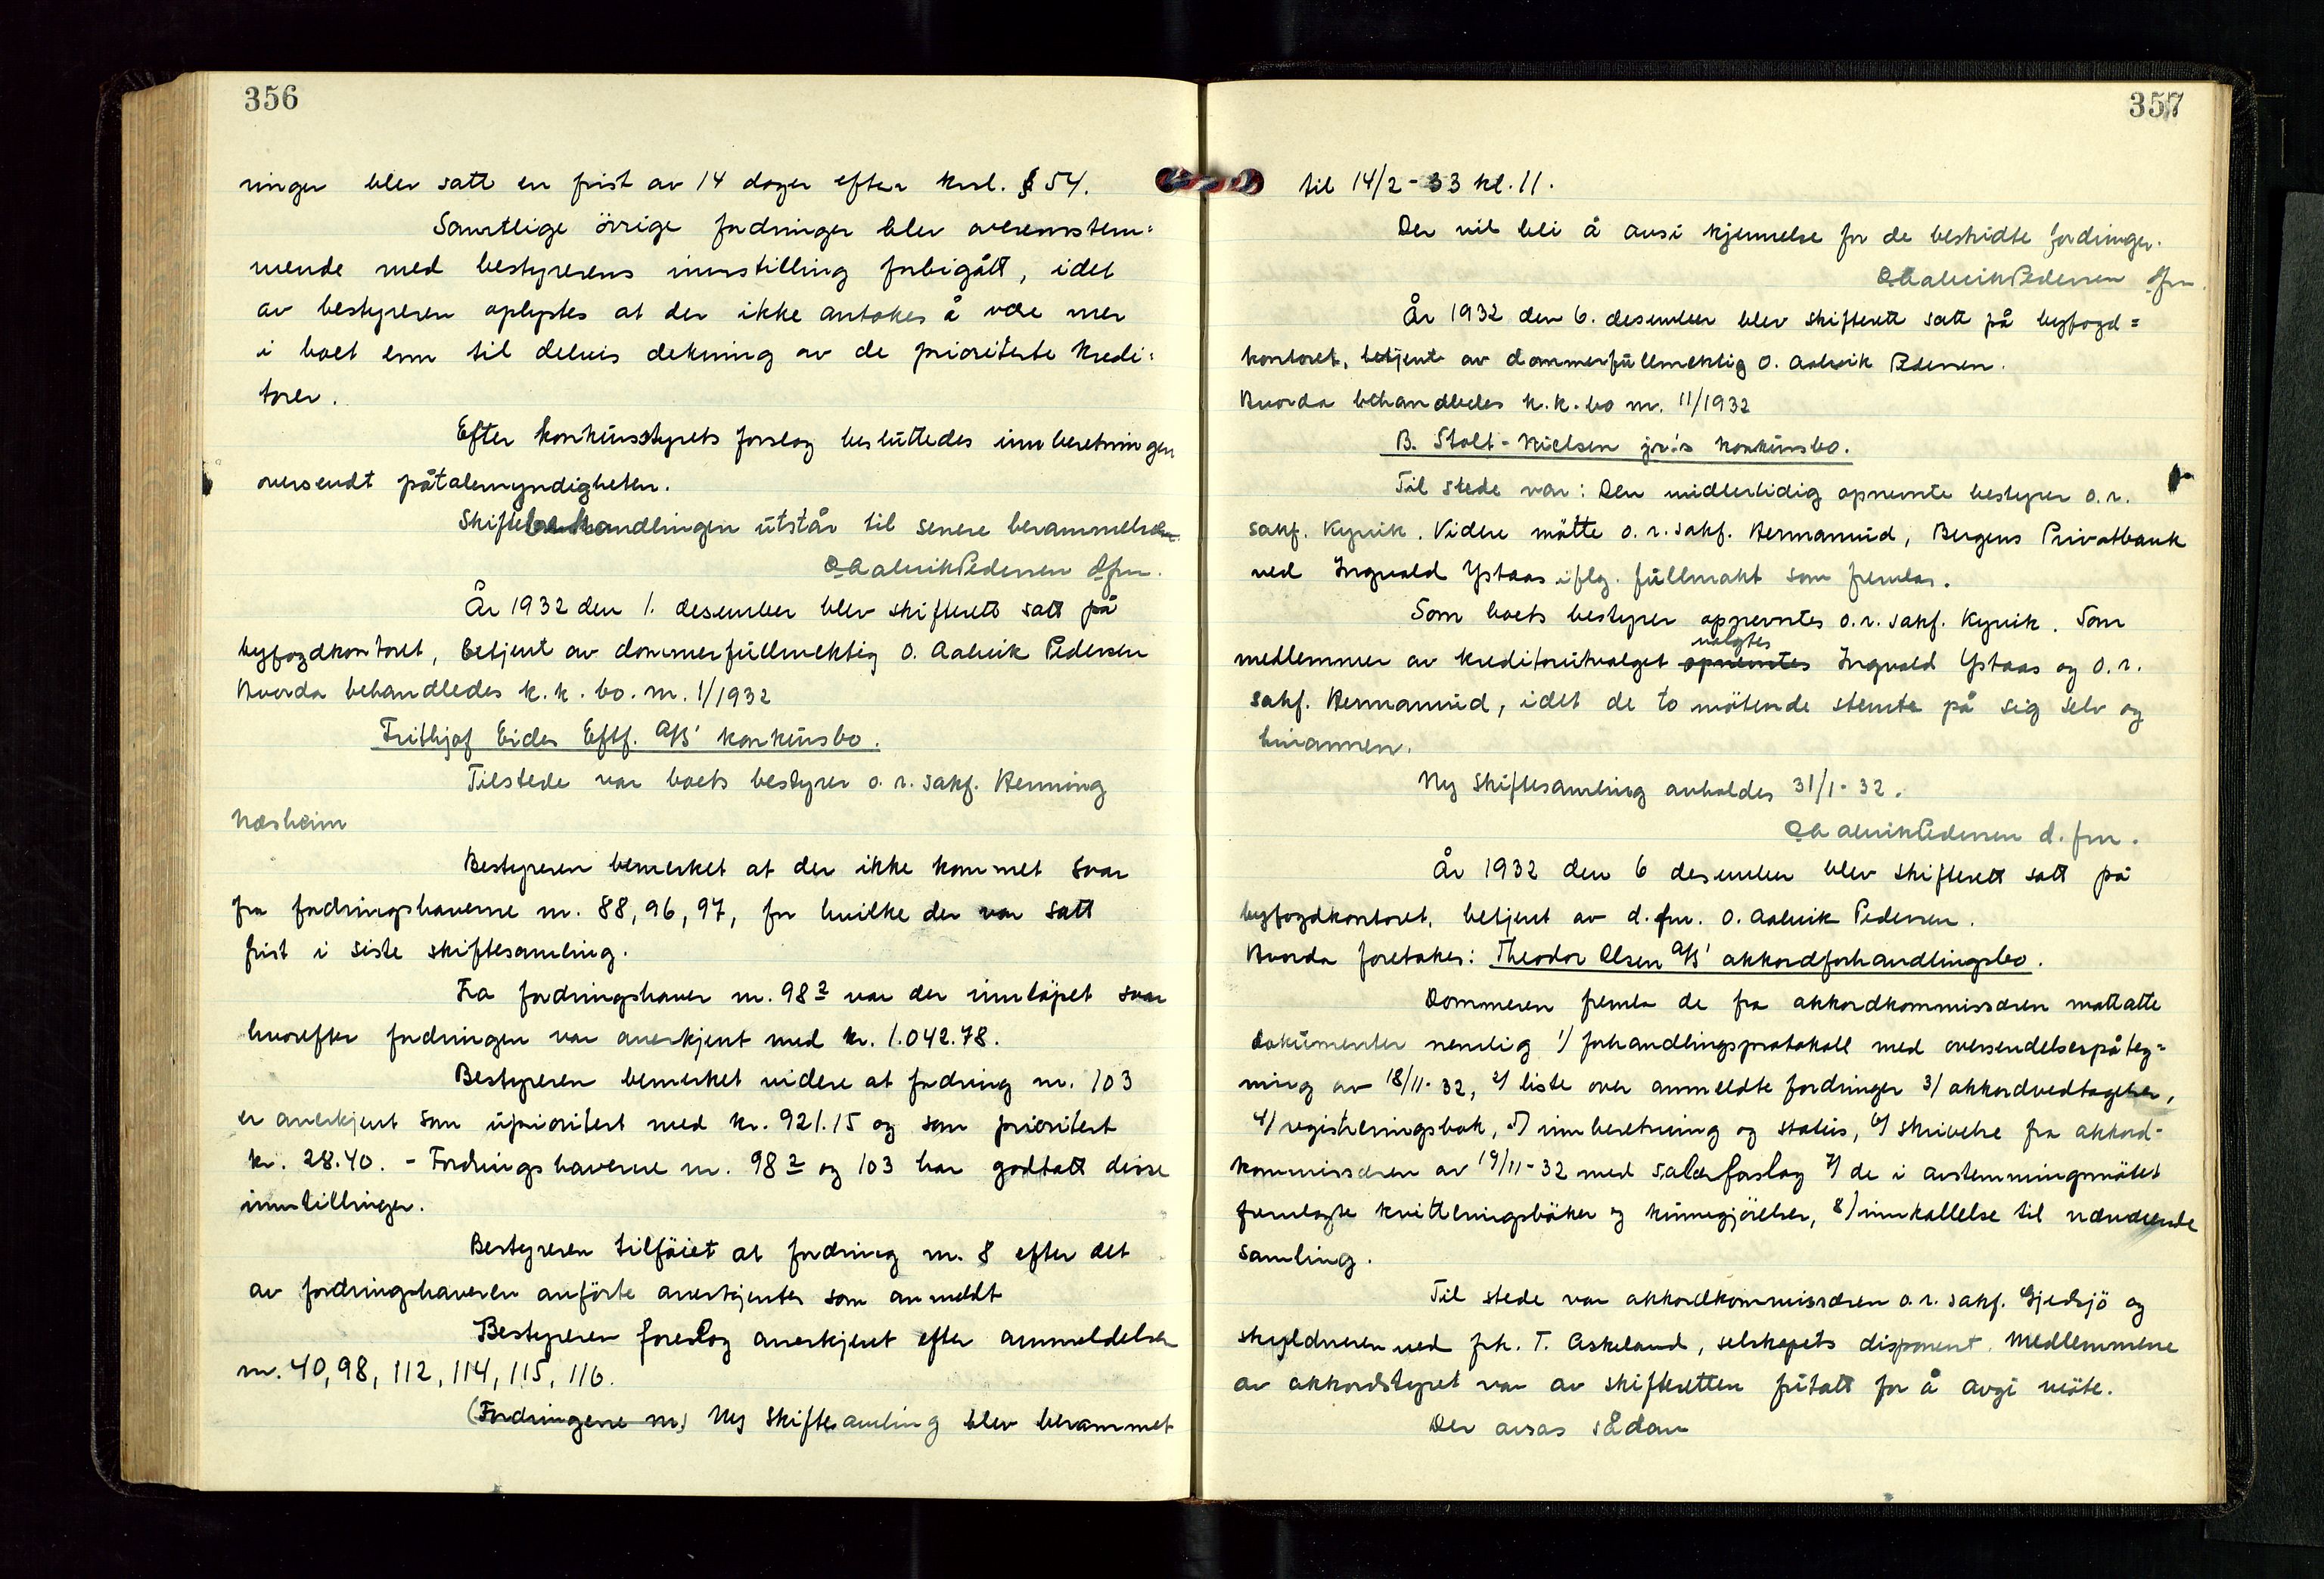 356
ringer blev satt en frist av 14 dager efter krsl. § 54.
Samtlige övrige fordringer blev overensstem=
mende med bestyrerens innstilling forbigått, idet
av bestyreren oplystes at der ikke antokes å være mer
i boet enn til delvis dekning av de prioriterte kredi=
torer.
Efter konkursstyrets forslag besluttedes innberetningen
oversendt påtalemyndigheten.
Skiftebehandlingen utstår til senere berammelse.
O Aalvik Pedersen dfm.
År 1932 den 1. desember blev skifterett satt på
byfogdkontoret, betjent av dommerfullmektig O. Aalvik Pedersen
Hvorda behandledes k.k. bo. nr. 1/1932
Frithjof Eides Eftf. A/S' konkursbo.
Tilstede var boets bestyrer o.r.sakf. Henning
Næsheim
Bestyreren bemerket at der ikke kommet svar
fra fordringshaverne nr. 88, 96, 97, for hvilke der var satt
frist i siste skiftesamling.
Fra fordringshaver nr. 98 2 var der innløpet svar
hvorefter fordringen var anerkjent med kr. 1.042.78.
Bestyreren bemerket videre at fordring nr. 103
er anerkjent som uprioritert med kr. 921.15 og som prioritert
kr. 28.40. - Fordringshaverne nr. 98 2 og 103 har godtatt disse
innstillinger.
Bestyreren tilföiet at fordring nr. 8 efter det
av fordringshaveren anförte anerkjentes som anmeldt
Bestyreren foreslog anerkjent efter anmeldelsen
nr. 40, 98, 112, 114, 115, 116.
(Fordringene nr.) Ny skiftesamling blev berammet
357
til 14/2 - 33 kl. 11.
Der vil bli å avsi kjennelse for de bestridte fordringer.
O Aalvik Pedersen dfm.
År 1932 den 6. desember blev skifterett satt på byfogd=
kontoret, betjent av dommerfullmektig O. Aalvik Pedersen.
Hvorda behandledes k.k. bo nr. 11/1932
B. Stolt-Nielsen jr.'s konkursbo.
Til stede var: Den midlertidig opnevnte bestyrer o.r.
sakf. Kyvik. Videre mötte o.r.sakf. Hermanrud, Bergens Privatbank
ved Ingvald Ystaas iflg. fullmakt som fremla.
Som boets bestyrer opnevntes o.r.sakf. Kyvik. Som
valgtes
medlemmer av kreditorutvalget opnevntes Ingvald Ystaas og o.r.
sakf. Hermanrud, idet de to mötende stemte på sig selv og
hinannen.
Ny skiftesamling avholdes 31/1 - 32.
O Aalvik Pedersen d. fm.
År 1932 den 6 desember blev skifterett satt på
byfogdkontoret, betjent av d. fm. O. Aalvik Pedersen.
Hvorda foretakes: Theodor Olsen A/S' akkordforhandlingsbo.
Dommeren fremla de fra akkordkommissæren mottatte
dokumenter nemlig 1) forhandlingsprotokoll med oversendelsespåteg=
ning av 18/11-32, 2) liste over anmeldte fordringer 3) akkordvedtagelser,
4) registreringsbok, 5) innberetning og status, 6) skrivelse fra akkord-
kommissæren av 19/11-32 med salærforslag 7) de i avstemningsmötet
fremlagte kvitteringsböker og kunngjörelser, 8) innkallelse til nærværende
samling.
Til stede var akkordkommissæren o.r.sakf. Gjedsjö og
skyldneren ved frk. T. Askeland, selskapets disponent. Medlemmene
av akkordstyret var av skifteretten fritatt for å avgi möte.
Der avsas sådan